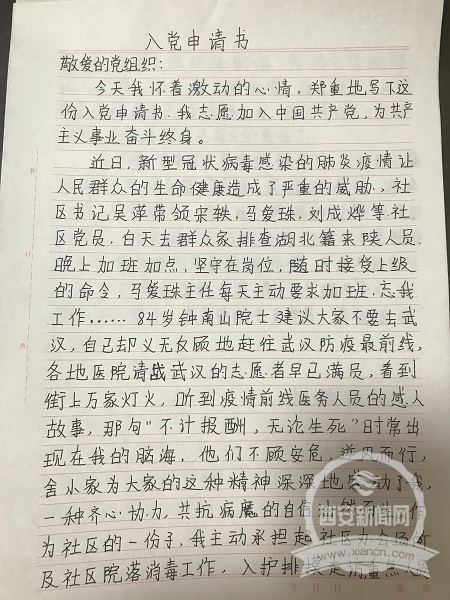 入党申请书
敬爱的党组织:
今天我怀着激动的心情,郑重地写下这
份入党申请书.我志愿加入中国共产党,为共产
主义事业奋斗终身。
近日,新型冠状病毒感染的肺炎疫情让
人民群众的生命健康造成了严重的威胁.,社
区书记吴萍带领宋轶,马爱珠.刘成烨等社
区党员.白天去群众家排查湖北籍来陕人员.
晚上加班加点,坚守在岗位,随时接受上级
的命令,马爱珠主任每天主动要求加班.忘我
工作……84岁钟南山院士建议大家不要去武
汉,自己却义无反顾地赶往武汉防疫最前线,
各地医院请战武汉的志愿者早已满员,看到
街上万家灯火,听到疫情前线医务人员的感人
故事,那句“不计报酬,无论生死”时常出
现在我的脑海,他们不顾安危,逆风而行,
舍小家为大家的这种精神深深地感动了我,
一种齐心协力.共抗病魔的自
为社区的一份子,我主动承担起社区办公场所
及社区院落消毒工作,入户排摸
西安新闻网
www.xiancn.com
年 月 日 第 页